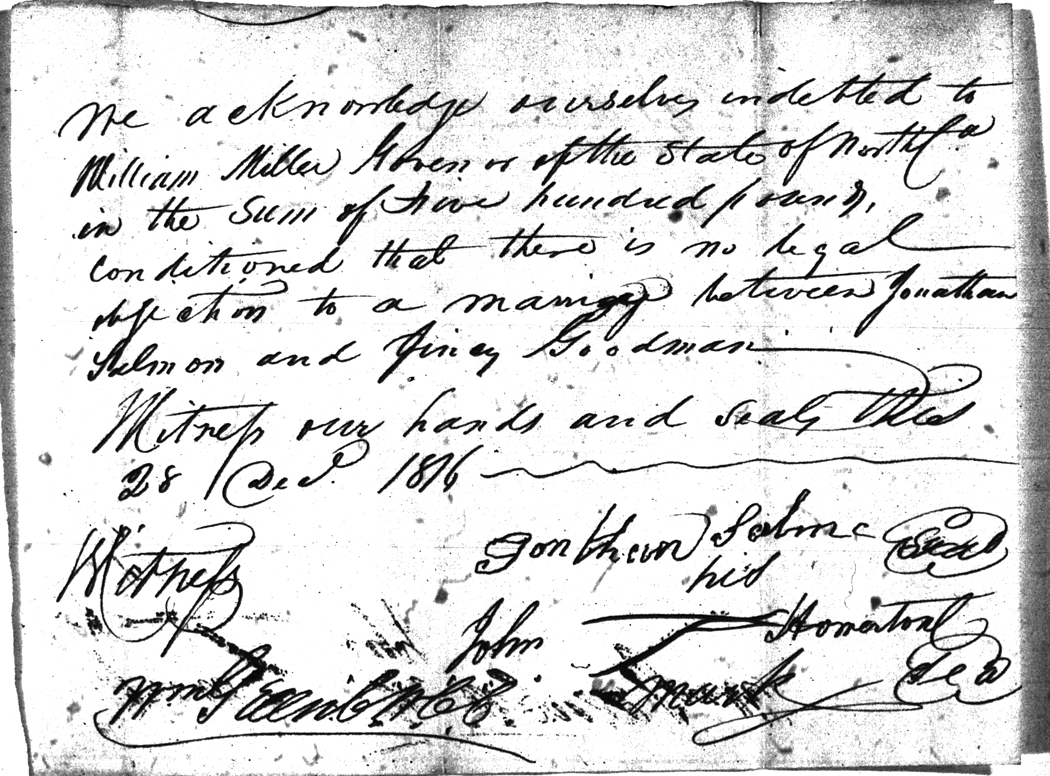 We acknowledge ourselves indebted to
William Miller Govenor of the State of North Ca
in the Sum of Five hundred pounds,
conditioned that there is no legal
objection to a marriage between Jonathan
Salmon and Jincy Goodman
Witness our hands and seals this
28 Decr. 1816
Witness
Jonthean Salmn Seal
his
John Homerton Sea
mark
Wm